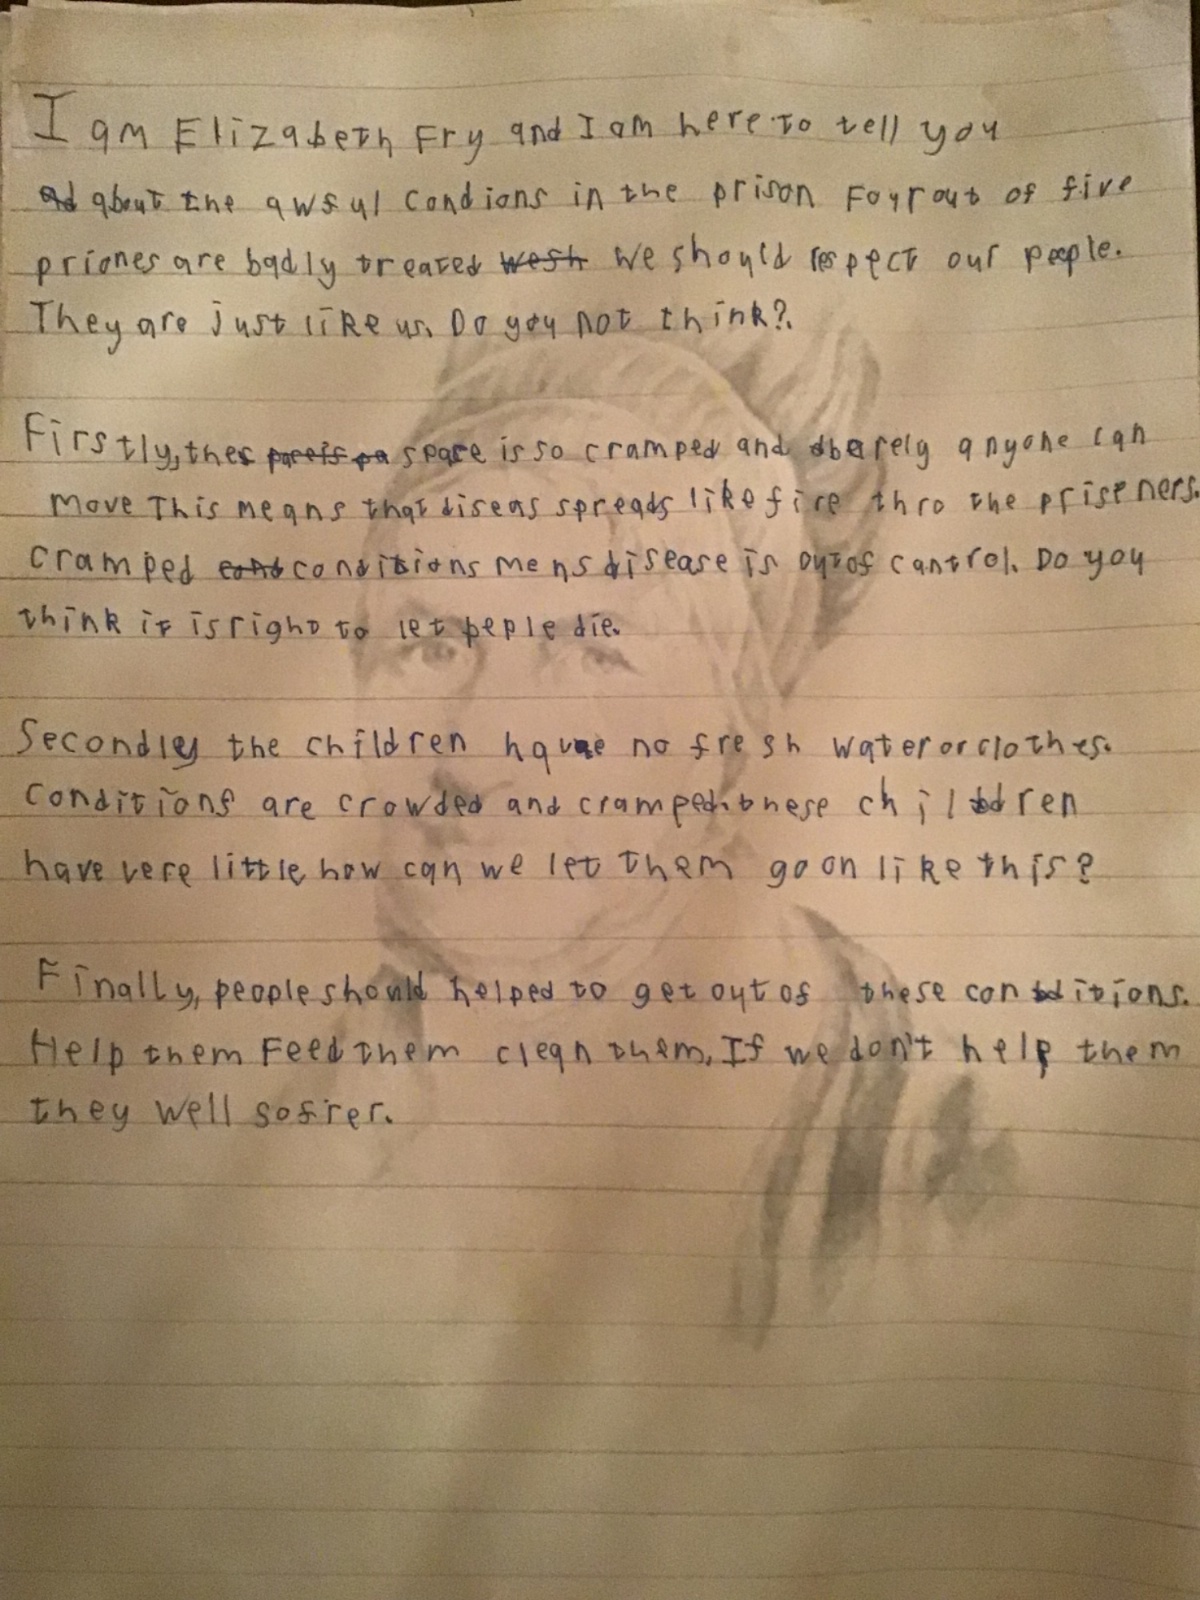 I am Elizabeth Fry and I am here to tell you
about the awful condions in the prison Four out of five
priones are badly treated we should respect our people.
They are just like us. Do you not think?.
Firstly, the space is so cramped and barely anyone can
move This means that diseas spreads like fire thro the priseners.
cramped conditions mens disease is out of cantrol. Do you
think it is right to let peple die.
Secondley the children have no fresh water or clothes.
conditions are crowded and cramped. these children
have vere little, how can we let them go on like this?
Finally, people should helped to get out of these conditions.
Help them Feed them clean them, If we don't help them
they well sofrer.